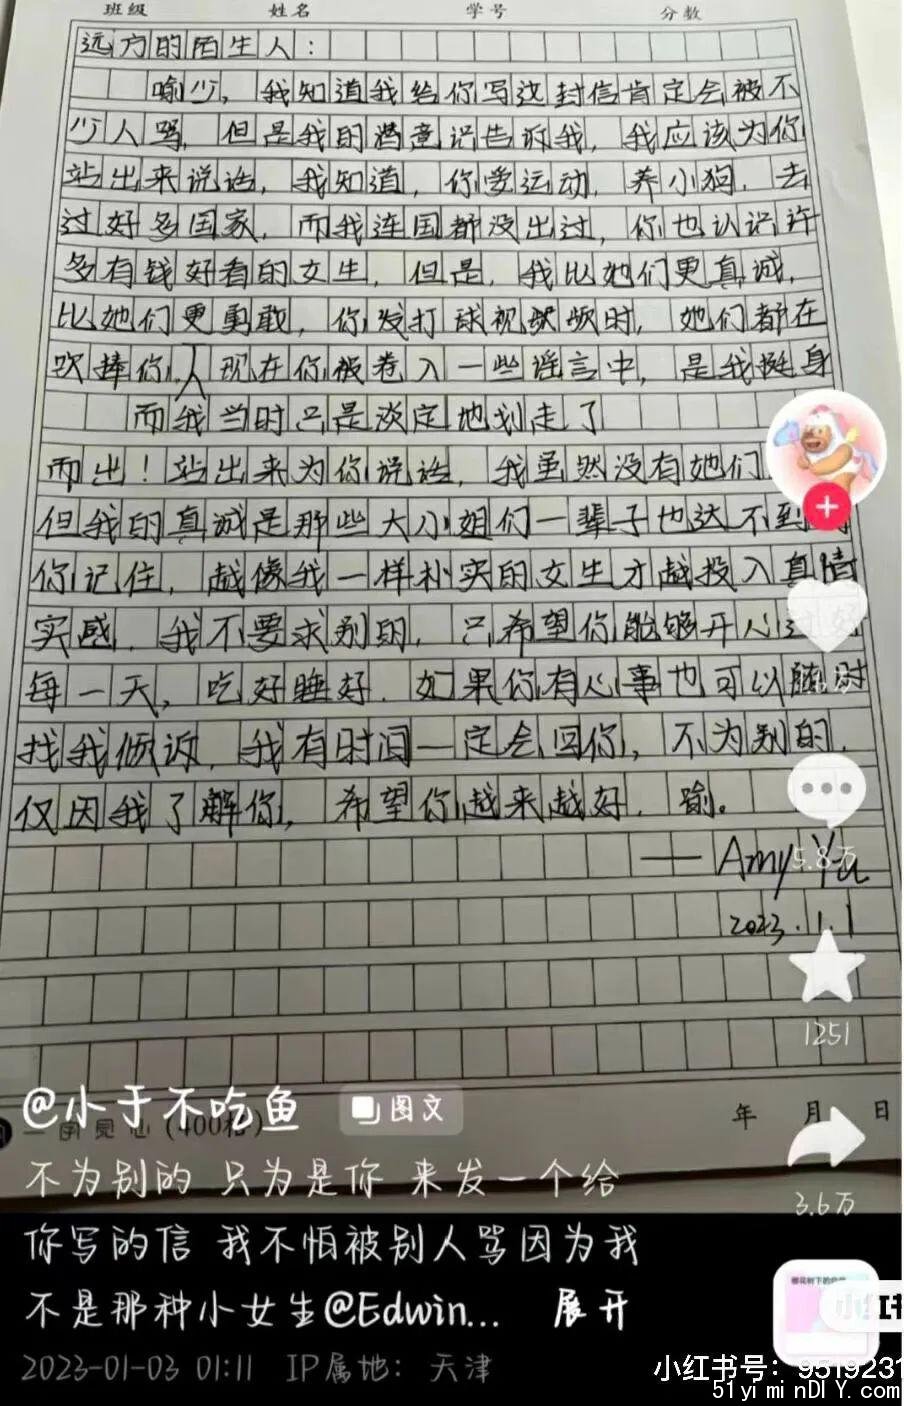 班级 姓名 学号 分数
远方的陌生人：
喻少，我知道我给你写这封信肯定会被不
少人骂，但是我的潜意识告诉我，我应该为你
站出来说话，我知道，你爱运动，养小狗，去
过好多国家，而我连国都没出过，你也认识许
多有钱好看的女生，但是，我比她们更真诚，
比她们更勇敢，你发打球视频时，她们都在
吹捧你，现在你被卷入一些谣言中，是我挺身
而我当时只是淡定地划走了
而出！站出来为你说话，我虽然没有她们
但我的真诚是那些大小姐们一辈子也达不到
你记住，越像我一样朴实的女生才越投入真情
实感，我不要求别的，只希望你能够开心过好
每一天，吃好睡好．如果你有心事也可以随时
找我倾诉，我有时间一定会回你，不为别的，
仅因我了解你，希望你越来越好．喻。
——Amy Yu
2023.1.1
5.8万
1251
@小于不吃鱼 图文
(400格)
年 月 日
不为别的 只为是你 来发一个给
3.6万
你写的信 我不怕被别人骂因为我
不是那种小女生@Edwin... 展开
小红
2023-01-03 01:11 IP属地：天津
小红书号：9519231
51yiminDIY.com